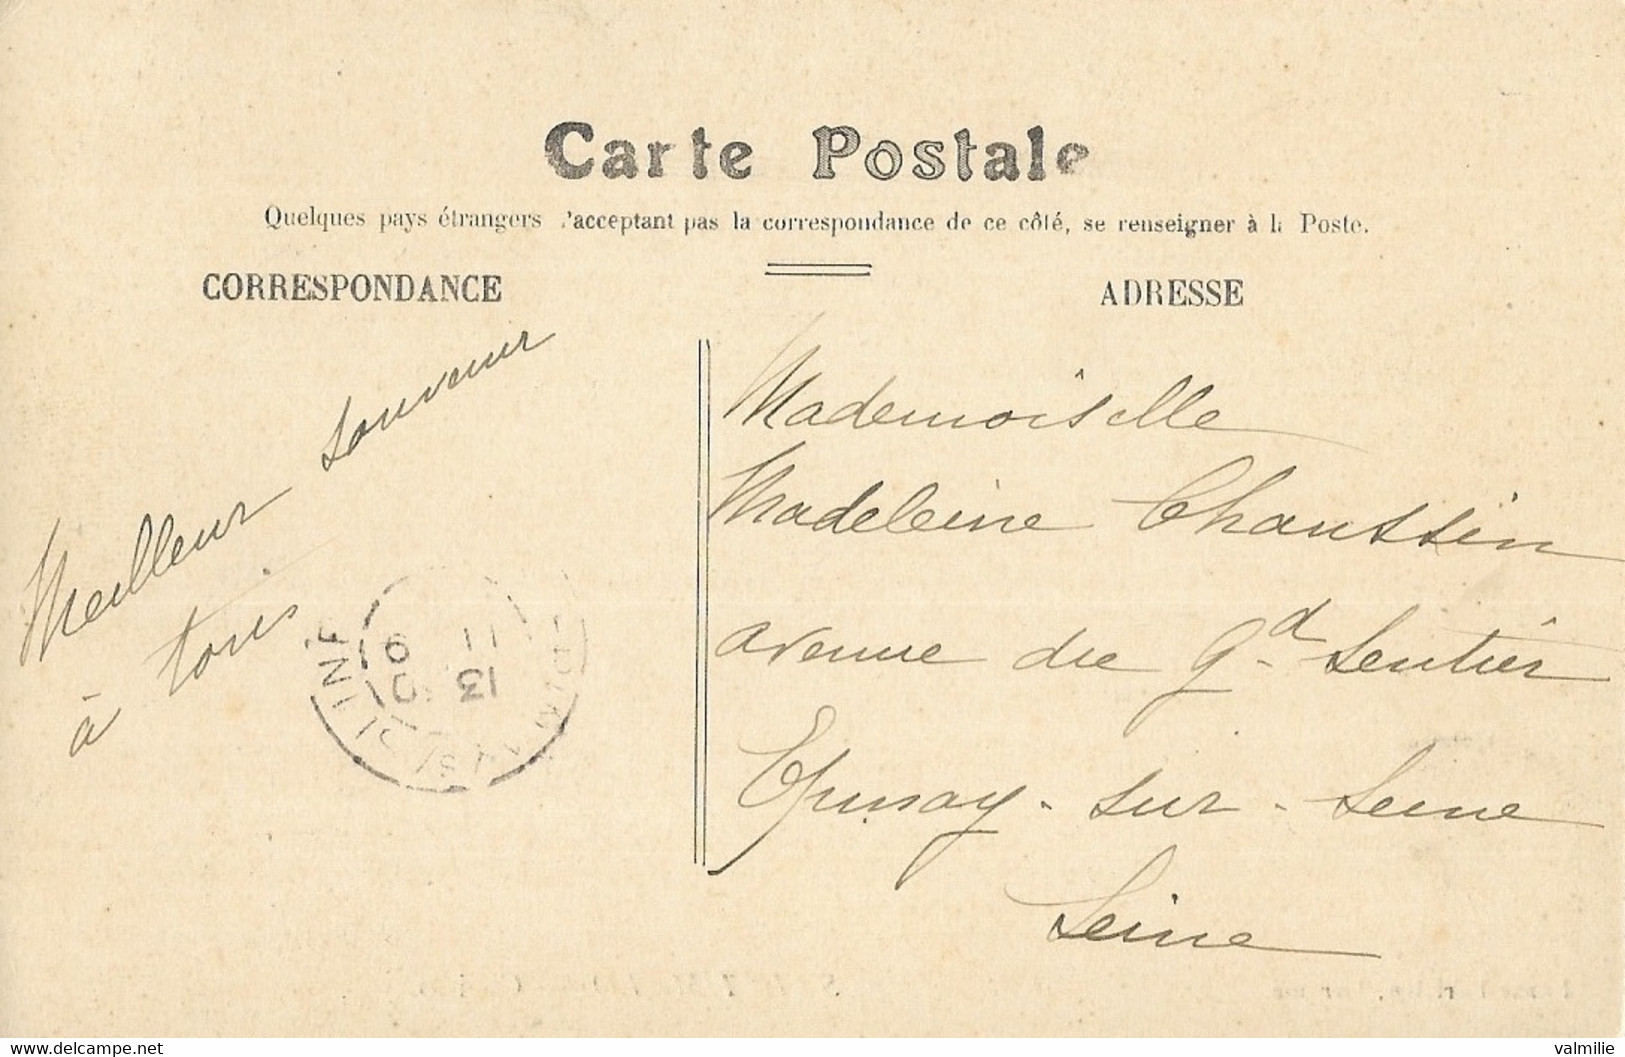 Carte Postale
Quelques pays étrangers n'acceptant pas la correspondance de ce côté, se renseigner à la Poste.
CORRESPONDANCE
ADRESSE
Meilleur souvenir
à tous
Mademoiselle
Madeleine Chaussin
avenue du Gd Sentier
Epinay-sur-Seine
Seine
11
13 9
valmilie